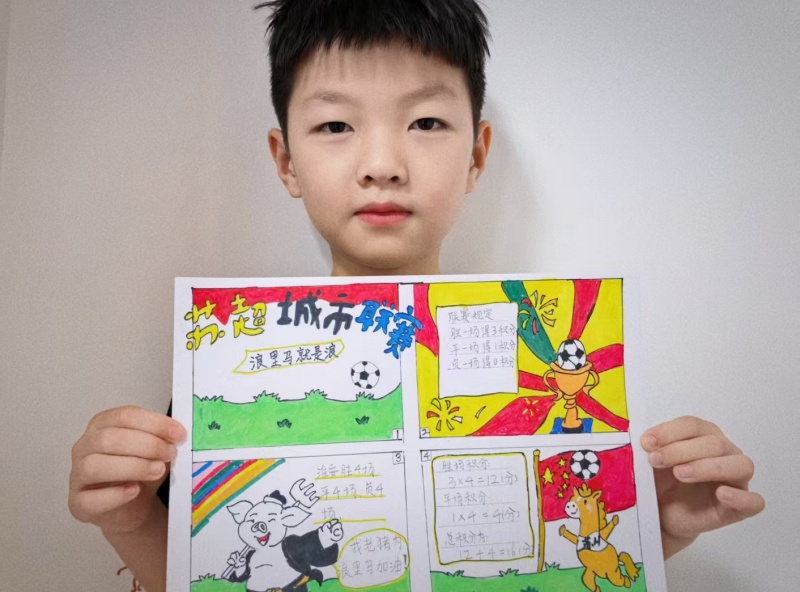 苏超 城市联赛
浪里马就是浪
1
联赛规定
胜一场得3积分
平一场得1积分
负一场得0积分
2
3
淮安胜4场
平4场 负4
场
我老猪为
浪里马加油!
4
胜场积分:
3×4=12(分)
平场积分:
1×4=4(分)
总积分为:
12+4=16(分)